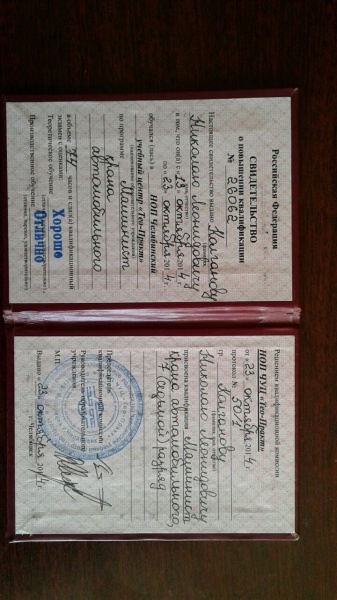 Российская Федерация
СВИДЕТЕЛЬСТВО
о повышении квалификации
№ 26062
Настоящее свидетельство выдано Калганову
(фамилия,
Николаю Леонидовичу
в том, что он(а) с «13» октября 2014 г.
по «23» октября 2014 г.
обучался (лась) в НОП Челябинский
учебный центр «Тео-Практ»
по программе Машинист
крана
автомобильного
в объеме часов и сдал(а) квалификационный
экзамен с оценками:
Теоретическое обучение Хорошо
Производственное обучение Отлично
Решением квалификационной комиссии
НОП ЧУЦ «Тео-Практ»
от «23» октября 2014 г.
протокол № 507/1
гр. Калганову
Николаю Леонидовичу
присвоена квалификация Машинист
крана автомобильного,
7 (седьмой) разряд
Председатель
квалификационной комиссии
Руководитель образовательного
учреждения
М.П.
Выдано «23» октября 2014 г.
г. Челябинск